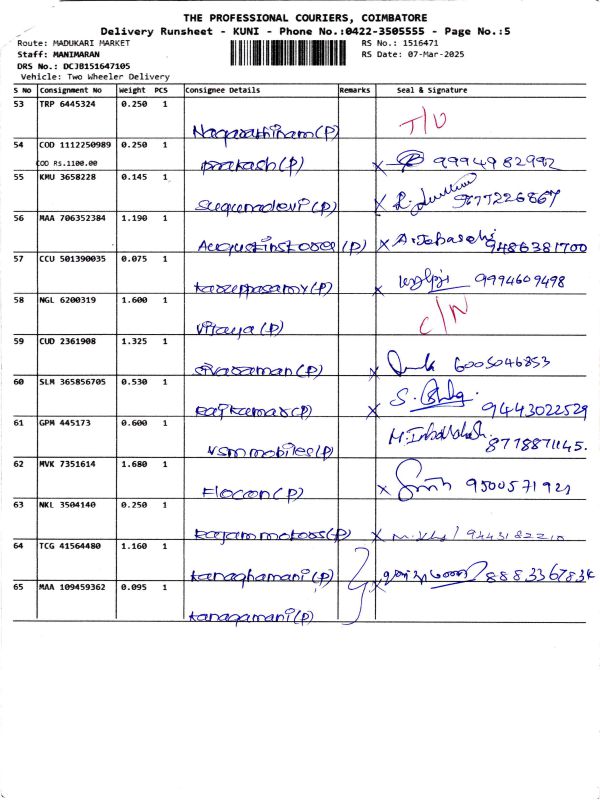 THE PROFESSIONAL COURIERS, COIMBATORE
Delivery Runsheet - KUNI - Phone No.:0422-3505555 - Page No.:5
Route: MADUKARI MARKET RS No.: 1516471
Staff: MANIMARAN RS Date: 07-Mar-2025
DRS No.: DCJB151647105
Vehicle: Two Wheeler Delivery
S No Consignment No Weight PCS Consignee Details Remarks Seal & Signature
53 TRP 6445324 0.250 1
(P) T/U
54 COD 1112250989 0.250 1
COD Rs.1100.00 prakash(P) X 9994982992
55 KMU 3658228 0.145 1
Sugunadevi(P) X 9677226867
56 MAA 706352384 1.190 1
(P) X 9486381700
57 CCU 501390035 0.075 1
karuppasamy(P) X 9994609498
58 NGL 6200319 1.600 1
Vijaya(P) C/N
59 CUD 2361908 1.325 1
sivaraman(P) X 6005046853
60 SLM 365856705 0.530 1
rajkumar(P) X 9443022529
61 GPM 445173 0.600 1
vsm mobiles(P) 8778871145.
62 MVK 7351614 1.680 1
(P) X 9500571921
63 NKL 3504140 0.250 1
(P) X
64 TCG 41564480 1.160 1
(P) X 8883367834
65 MAA 109459362 0.095 1
kanagamani(P)